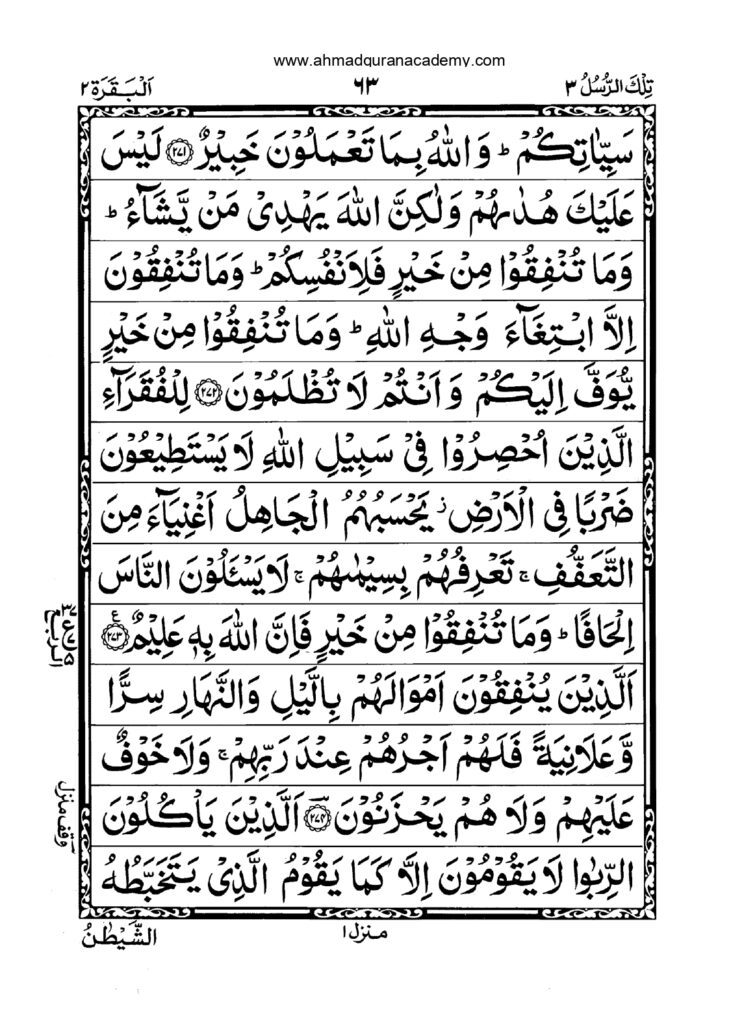 www.ahmadquranacademy.com
تِلْكَ الرُّسُلُ ٣
٦٣
اَلْبَقَرَة ٢
سَيِّاٰتِكُمْ ؕ وَ اللّٰهُ بِمَا تَعْمَلُوْنَ خَبِيْرٌ ﴿٢٧١﴾ لَيْسَ
عَلَيْكَ هُدٰىهُمْ وَلٰكِنَّ اللّٰهَ يَهْدِيْ مَنْ يَّشَآءُ ؕ
وَمَا تُنْفِقُوْا مِنْ خَيْرٍ فَلِاَنْفُسِكُمْ ؕ وَمَا تُنْفِقُوْنَ
اِلَّا ابْتِغَآءَ وَجْهِ اللّٰهِ ؕ وَمَا تُنْفِقُوْا مِنْ خَيْرٍ
يُّوَفَّ اِلَيْكُمْ وَ اَنْتُمْ لَا تُظْلَمُوْنَ ﴿٢٧٢﴾ لِلْفُقَرَآءِ
الَّذِيْنَ اُحْصِرُوْا فِيْ سَبِيْلِ اللّٰهِ لَا يَسْتَطِيْعُوْنَ
ضَرْبًا فِي الْاَرْضِ ؗ يَحْسَبُهُمُ الْجَاهِلُ اَغْنِيَآءَ مِنَ
التَّعَفُّفِ ۚ تَعْرِفُهُمْ بِسِيْمٰىهُمْ ۚ لَا يَسْـَٔلُوْنَ النَّاسَ
اِلْحَافًا ؕ وَمَا تُنْفِقُوْا مِنْ خَيْرٍ فَاِنَّ اللّٰهَ بِهٖ عَلِيْمٌ ﴿٢٧٣﴾ ع
اَلَّذِيْنَ يُنْفِقُوْنَ اَمْوَالَهُمْ بِالَّيْلِ وَالنَّهَارِ سِرًّا
وَّعَلَانِيَةً فَلَهُمْ اَجْرُهُمْ عِنْدَ رَبِّهِمْ ۚ وَلَا خَوْفٌ
عَلَيْهِمْ وَلَا هُمْ يَحْزَنُوْنَ ﴿٢٧٤﴾ اَلَّذِيْنَ يَاْكُلُوْنَ
الرِّبٰوا لَا يَقُوْمُوْنَ اِلَّا كَمَا يَقُوْمُ الَّذِيْ يَتَخَبَّطُهُ
الربع
وقف منزل
منزل ١
الشَّيْطٰنُ